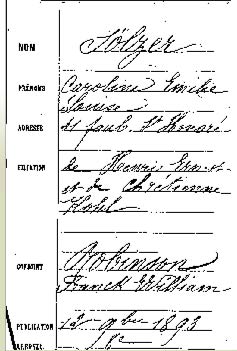 NOM Sölzer
PRÉNOMS Caroline Emilie
Louise
ADRESSE 21 faub. St Honoré
FILIATION de Henri Ern-st
et de Chrétienne
Hotel
CONJOINT Robinson
Franck William
PUBLICATION 12 9bre 1893